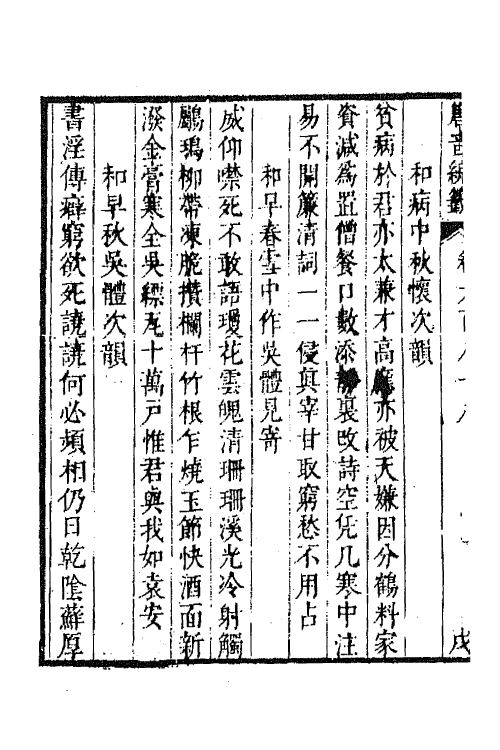 唐音統籤
和病中秋懷次韻
貧病於君亦太兼才高應亦被天嫌因分鶴料家
資減爲置僧餐口數添靜裏改詩空凭几寒中注
易不開簾清詞一一侵眞宰甘取窮愁不用占
和早春雪中作吳體見寄
威仰噤死不敢語瓊花雲魄清珊珊溪光冷射觸
鸀鳿柳帶凍脆攢欄杆竹根乍燒玉節快酒面新
潑金膏寒全吳縹瓦十萬戸惟君與我如袁安
和早秋吳體次韻
書淫傳癖窮欲死譊譊何必頻相仍日乾陰蘚厚
戌